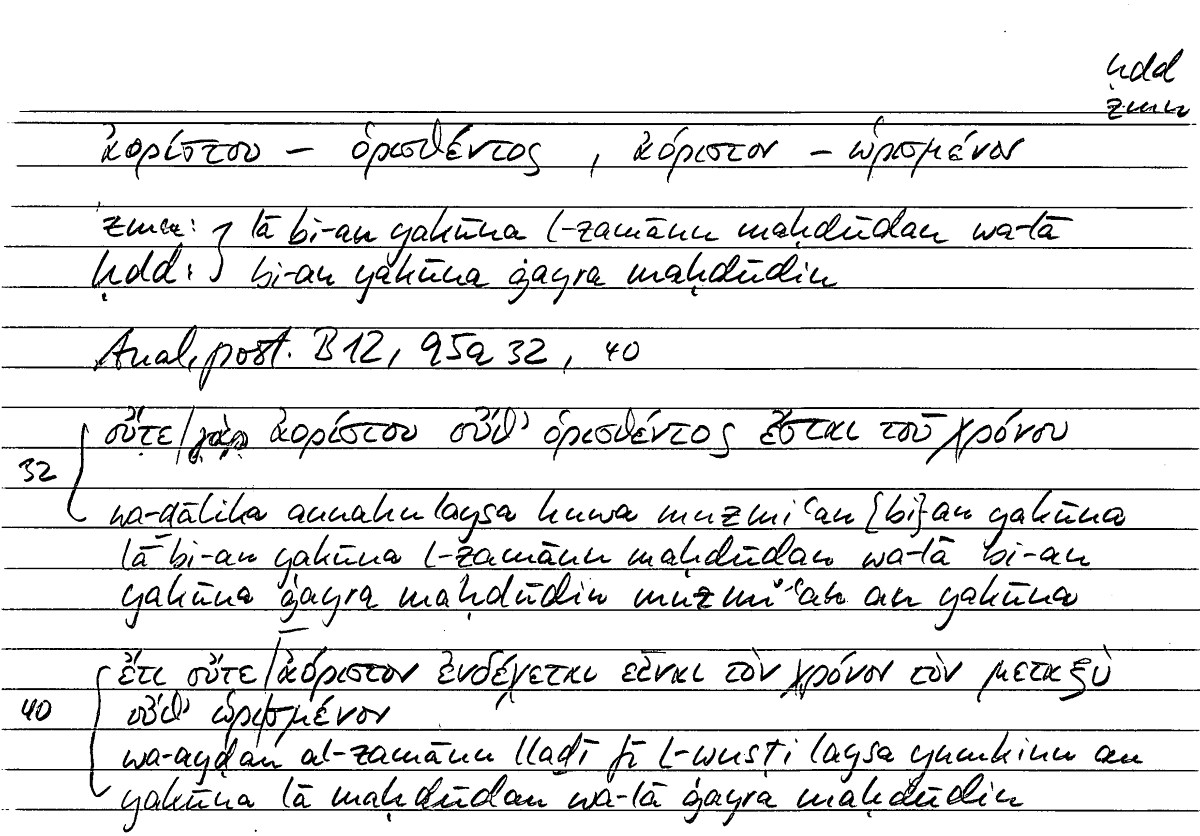 ḥdd
zmn
ἀορίστου – ὁρισθέντος , ἀόριστον – ὡρισμένον
zmn: } lā bi-an yakūna l-zamānu maḥdūdan wa-lā
ḥdd: } bi-an yakūna ġayra maḥdūdin
Anal. post. B 12, 95a 32, 40
οὔτε / γὰρ ἀορίστου οὔθ' ὁρισθέντος ἔσται τοῦ χρόνου
32
wa-ḏālika annahu laysa huwa muzmiʿan {bi}an yakūna
lā bi-an yakūna l-zamānu maḥdūdan wa-lā bi-an
yakūna ġayra maḥdūdin muzmiʿan an yakūna
ἔτι οὔτε / ἀόριστον ἐνδέχεται εἶναι τὸν χρόνον τὸν μεταξὺ
40 οὔθ' ὡρισμένον
wa-ayḍan al-zamānu llaḏī fī l-wusṭi laysa yumkinu an
yakūna lā maḥdūdan wa-lā ġayra maḥdūdin